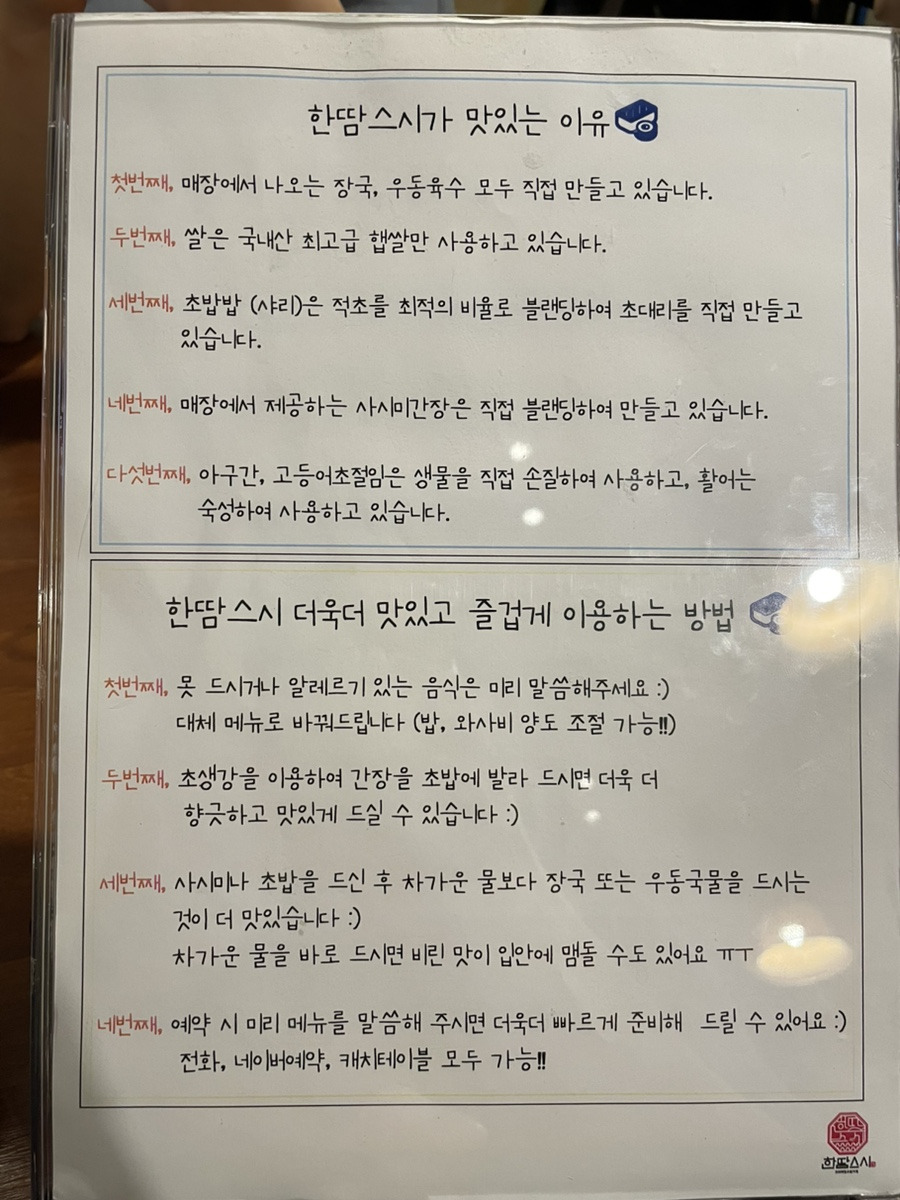 한땀스시가 맛있는 이유
첫번째, 매장에서 나오는 장국, 우동육수 모두 직접 만들고 있습니다.
두번째, 쌀은 국내산 최고급 햅쌀만 사용하고 있습니다.
세번째, 초밥밥 (샤리)은 적초를 최적의 비율로 블랜딩하여 초대리를 직접 만들고
있습니다.
네번째, 매장에서 제공하는 사시미간장은 직접 블랜딩하여 만들고 있습니다.
다섯번째, 아구간, 고등어초절임은 생물을 직접 손질하여 사용하고, 활어는
숙성하여 사용하고 있습니다.
한땀스시 더욱더 맛있고 즐겁게 이용하는 방법
첫번째, 못 드시거나 알레르기 있는 음식은 미리 말씀해주세요 :)
대체 메뉴로 바꿔드립니다 (밥, 와사비 양도 조절 가능!!)
두번째, 초생강을 이용하여 간장을 초밥에 발라 드시면 더욱 더
향긋하고 맛있게 드실 수 있습니다 :)
세번째, 사시미나 초밥을 드신 후 차가운 물보다 장국 또는 우동국물을 드시는
것이 더 맛있습니다 :)
차가운 물을 바로 드시면 비린 맛이 입안에 맴돌 수도 있어요 ㅠㅜ
네번째, 예약 시 미리 메뉴를 말씀해 주시면 더욱더 빠르게 준비해 드릴 수 있어요 :)
전화, 네이버예약, 캐치테이블 모두 가능!!
한땀스시